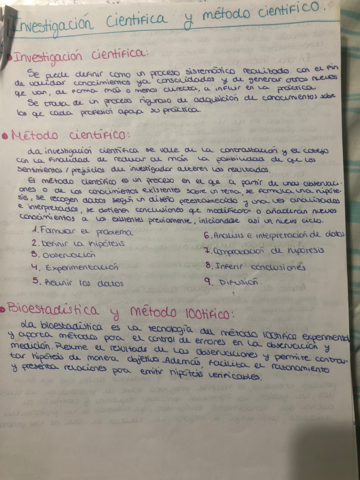 Investigación Científica y método científico.
Investigación científica:
Se puede definir como un proceso sistemático realizado con el fin
de validar conocimientos ya consolidados y de generar otros nuevos
que van, de forma más o menos directa, a influir en la práctica.
Se trata de un proceso riguroso de adquisición de conocimientos sobre
los que cada profesión apoya su práctica.
Método científico:
La investigación científica se vale de la contrastación y el cotejo
con la finalidad de reducir al más la posibilidad de que los
sentimientos / prejuicios del investigador alteren los resultados.
El método científico es un proceso en el que a partir de unas observaci-
ones o de los conocimientos existentes sobre un tema, se formula una hipóte-
sis, se recogen datos según un diseño preestablecido y una vez analizados
e interpretados, se obtienen conclusiones que modificarán o añadirán nuevos
conocimientos a los existentes previamente, iniciándose así un nuevo ciclo.
1. Formular el problema
2. Definir la hipótesis
3. Observación
4. Experimentación
5. Reunir los datos
6. Análisis e interpretación de datos
7. Comprobación de hipótesis
8. Inferir conclusiones
9. Difusión
Bioestadística y método 100tífico:
La bioestadística es la tecnología del método 100tífico experimental
y aporta métodos para el control de errores en la observación y
medición. Resume el resultado de las observaciones y permite contras-
tar hipótesis de manera objetiva. Además facilita el razonamiento
y presenta relaciones para emitir hipótesis verificables.